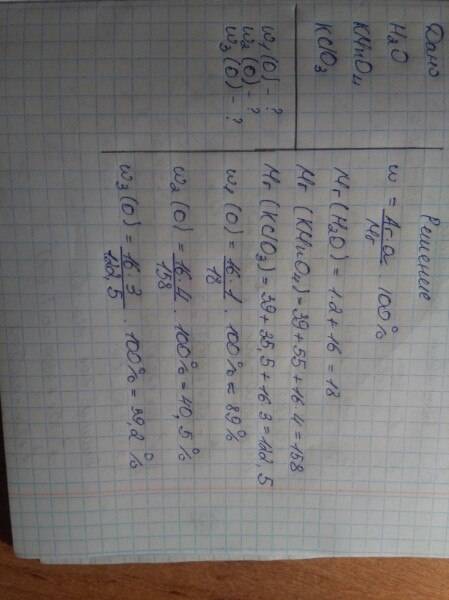 Дано
H2O
KMnO4
KClO3
w1 (O) - ?
w2 (O) - ?
w3 (O) - ?
Решение
w = Ar·n / Mr · 100%
Mr (H2O) = 1·2 + 16 = 18
Mr (KMnO4) = 39 + 55 + 16·4 = 158
Mr (KClO3) = 39 + 35,5 + 16·3 = 122,5
w1 (O) = 16·1 / 18 · 100% = 89%
w2 (O) = 16·4 / 158 · 100% = 40,5%
w3 (O) = 16·3 / 122,5 · 100% = 39,2%